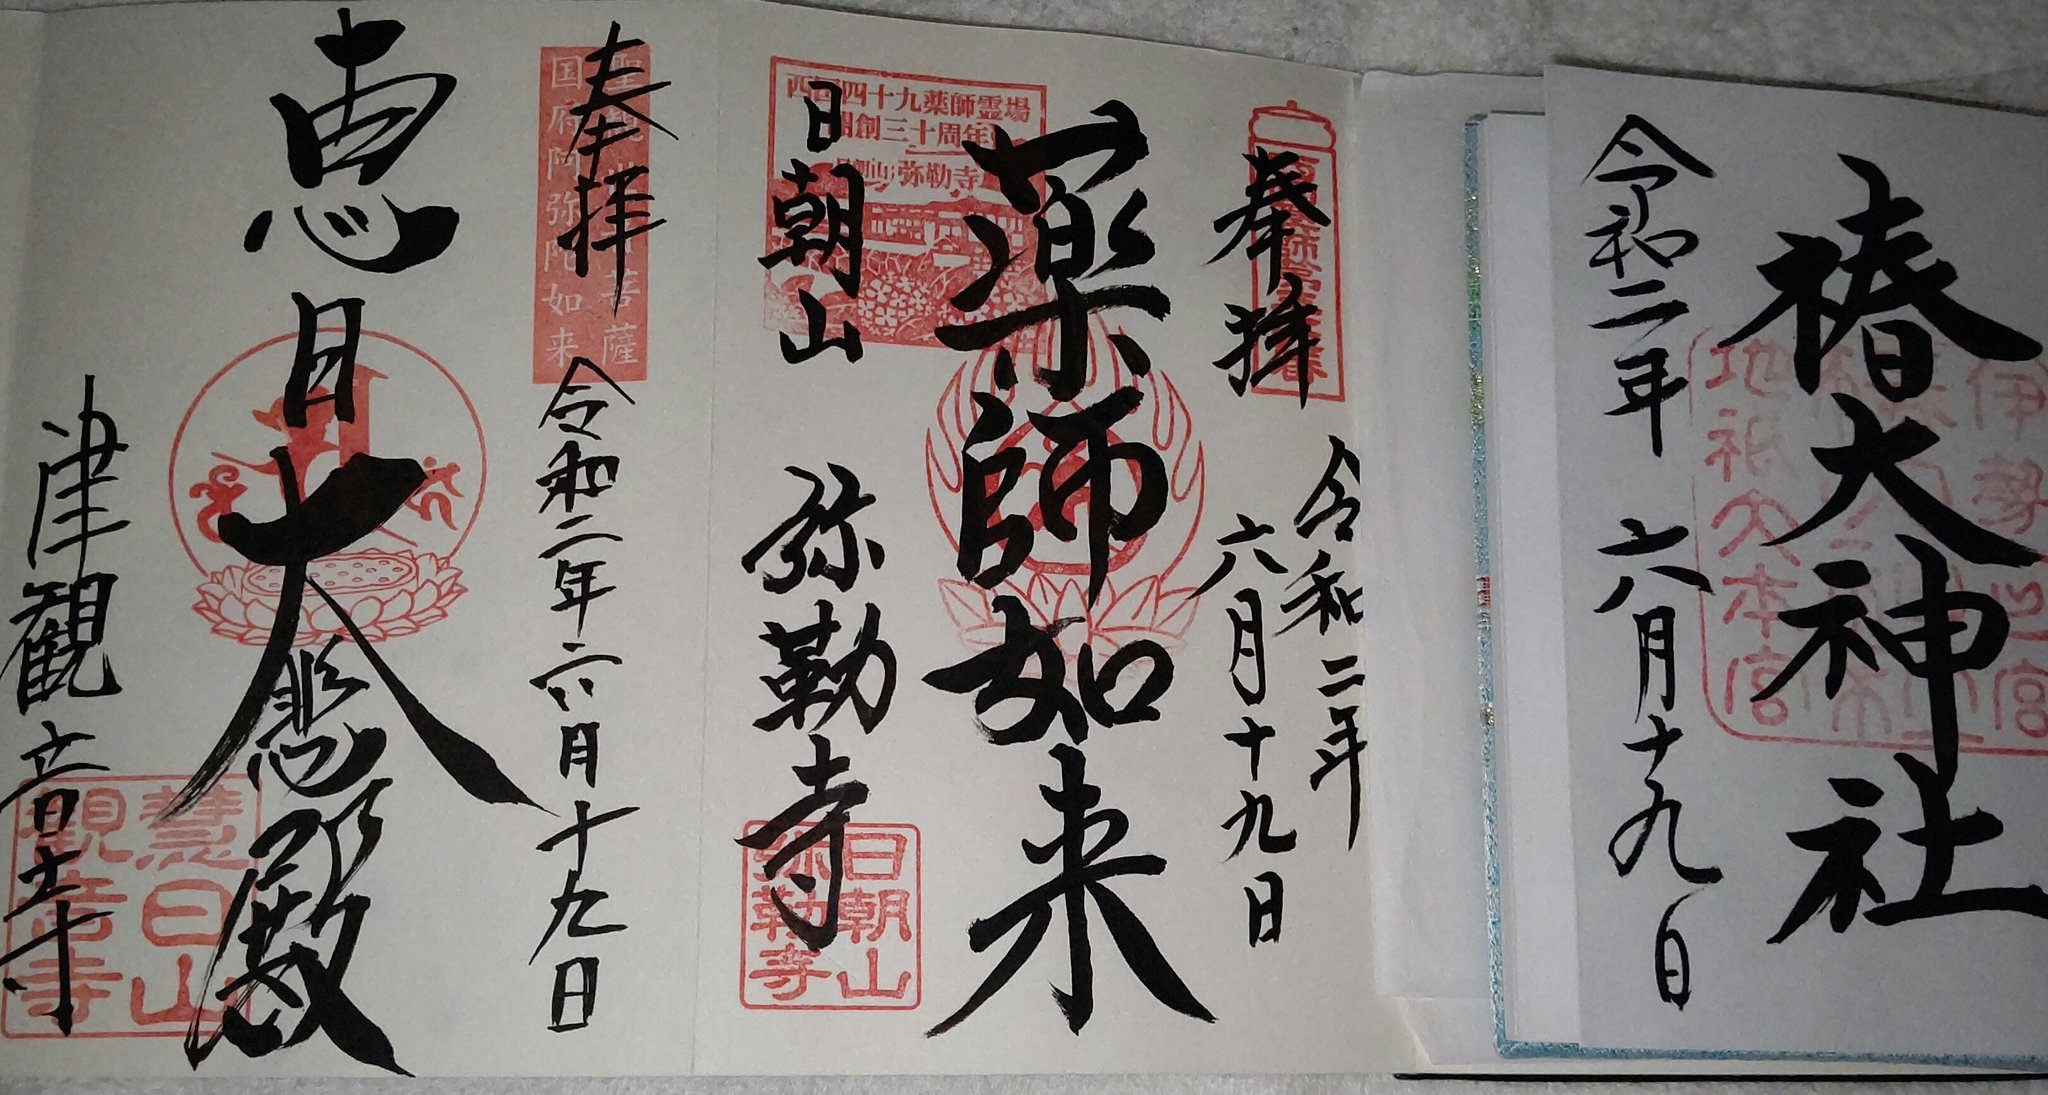 椿大神社
令和二年 六月十九日
伊勢一之宮
地祇大本宮
奉拝
令和二年
六月十九日
薬師如来
西国四十九薬師霊場
開創三十周年
日朝山弥勒寺
日朝山 弥勒寺
日朝山
弥勒寺
奉拝
令和二年六月十九日
国府阿弥陀如来
恵日山
大悲殿
津観音寺
慧日山
観音寺